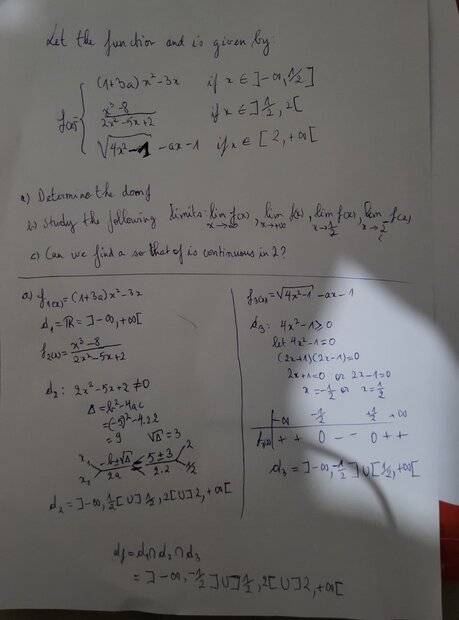 Let the function and is given by:
f(x)= { (1+3a)x²-3x if x ∈ ]-∞,1/2]
x³-8/2x²-5x+2 if x ∈ ]1/2, 2[
√4x²-1 -ax-1 if x ∈ [2,+∞[
a) Determine the domf
b) Study the following limits: lim x→-∞ f(x), lim x→+∞ f(x), lim x→1/2 f(x), lim x→2 f(x)
c) Can we find a so that f is continuous in 2?
a) f₁(x)=(1+3a)x²-3x
d₁=ℝ=]-∞,+∞[
f₂(x)=x³-8/2x²-5x+2
d₂: 2x²-5x+2≠0
Δ=b²-4ac
=(-5)²-4.2.2
=9 √Δ=3
x₁ x₂ -b±√Δ/2a = 5±3/2.2 2 1/2
d₂=]-∞,1/2[∪]1/2,2[∪]2,+∞[
f₃(x)=√4x²-1 -ax-1
d₃: 4x²-1≥0
let 4x²-1=0
(2x+1)(2x-1)=0
2x+1=0 or 2x-1=0
x=-1/2 or x=1/2
-∞ -1/2 +1/2 +∞
+ + 0 - - 0 + +
d₃=]-∞,-1/2]∪[1/2,+∞[
df=d₁∩d₂∩d₃
=]-∞,-1/2]∪]1/2,2[∪]2,+∞[